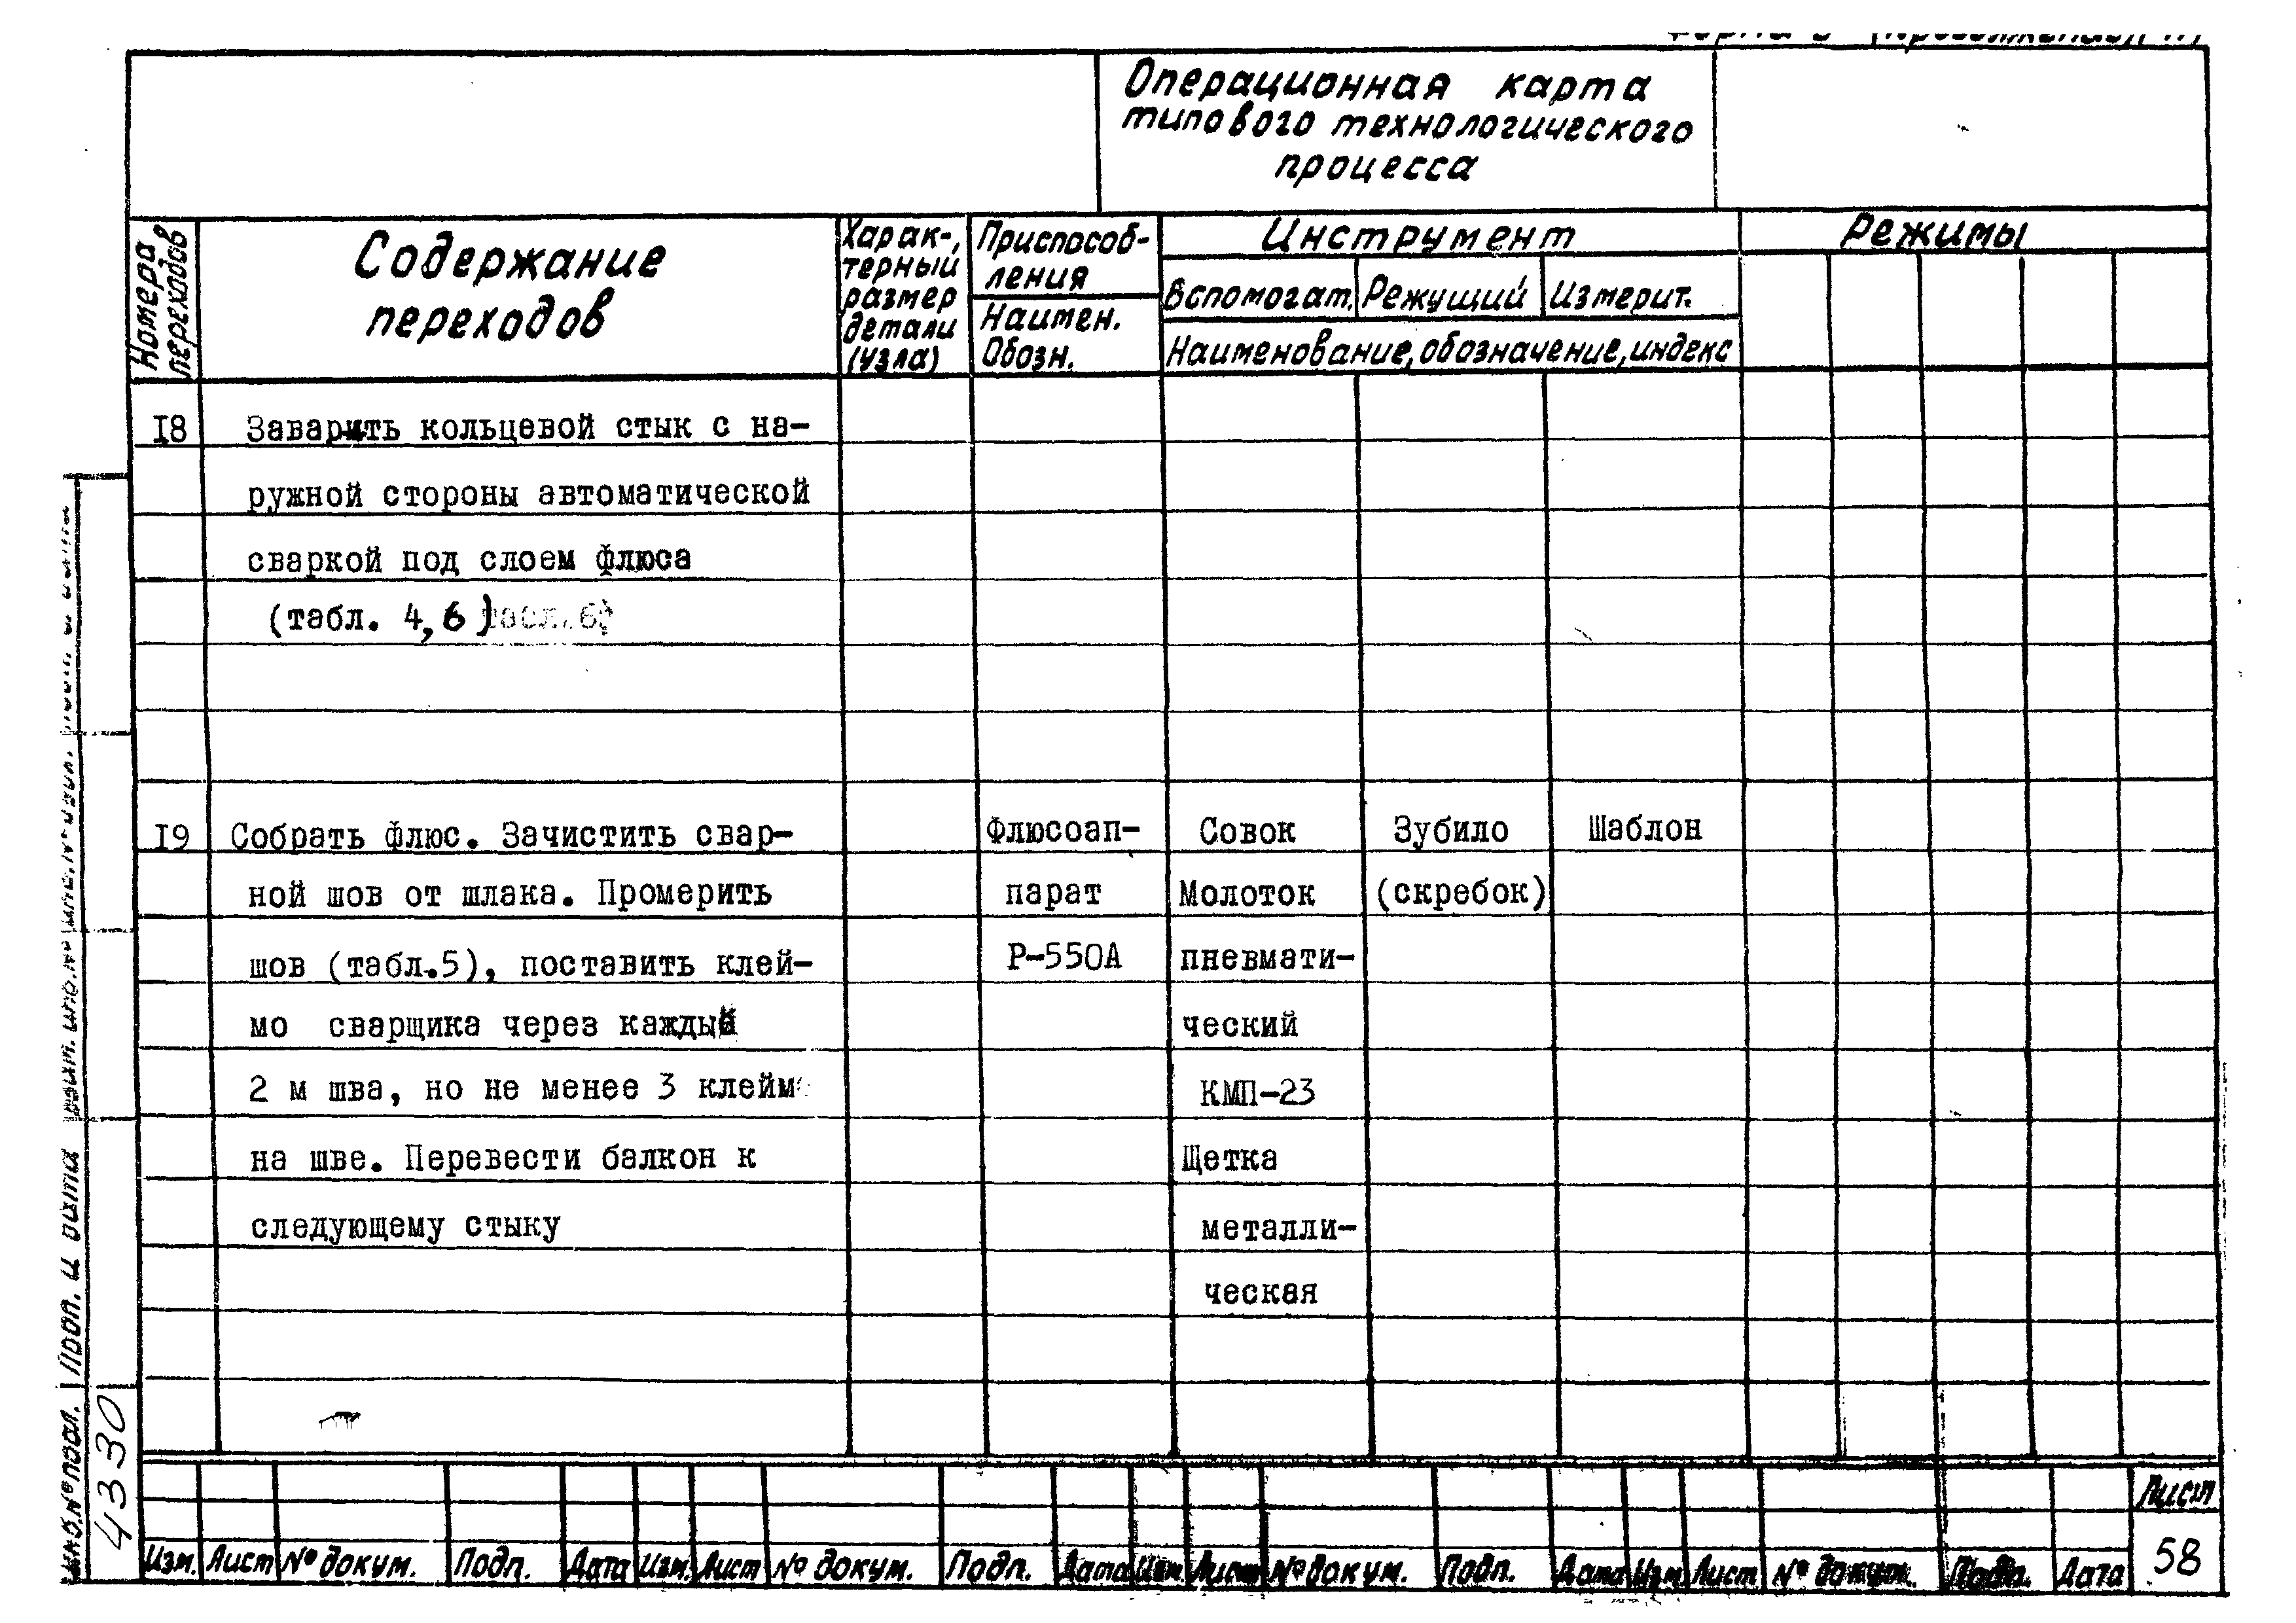 Операционная карта
типового технологического
процесса
Номера
переходов
Содержание
переходов
Харак-,
терный
размер
детали
(узла)
Приспособ-
ления
Наимен.
Обозн.
Инструмент
Вспомогат.
Режущий
Измерит.
Наименование, обозначение, индекс
Режимы
I8
Заварить кольцевой стык с на-
ружной стороны автоматической
сваркой под слоем флюса
(табл. 4,6)
I9
Собрать флюс. Зачистить свар-
ной шов от шлака. Промерить
шов (табл.5), поставить клей-
мо сварщика через каждый
2 м шва, но не менее 3 клейм
на шве. Перевести балкон к
следующему стыку
Флюсоап-
парат
Р-550А
Совок
Молоток
пневмати-
ческий
КМП-23
Щетка
металли-
ческая
Зубило
(скребок)
Шаблон
Инв.№ подл.
Подп. и дата
4330
Изм. Лист № докум. Подп. Дата Изм. Лист № докум. Подп. Дата Изм. Лист № докум. Подп. Дата Изм. Лист № докум. Подп. Дата
Лист
58